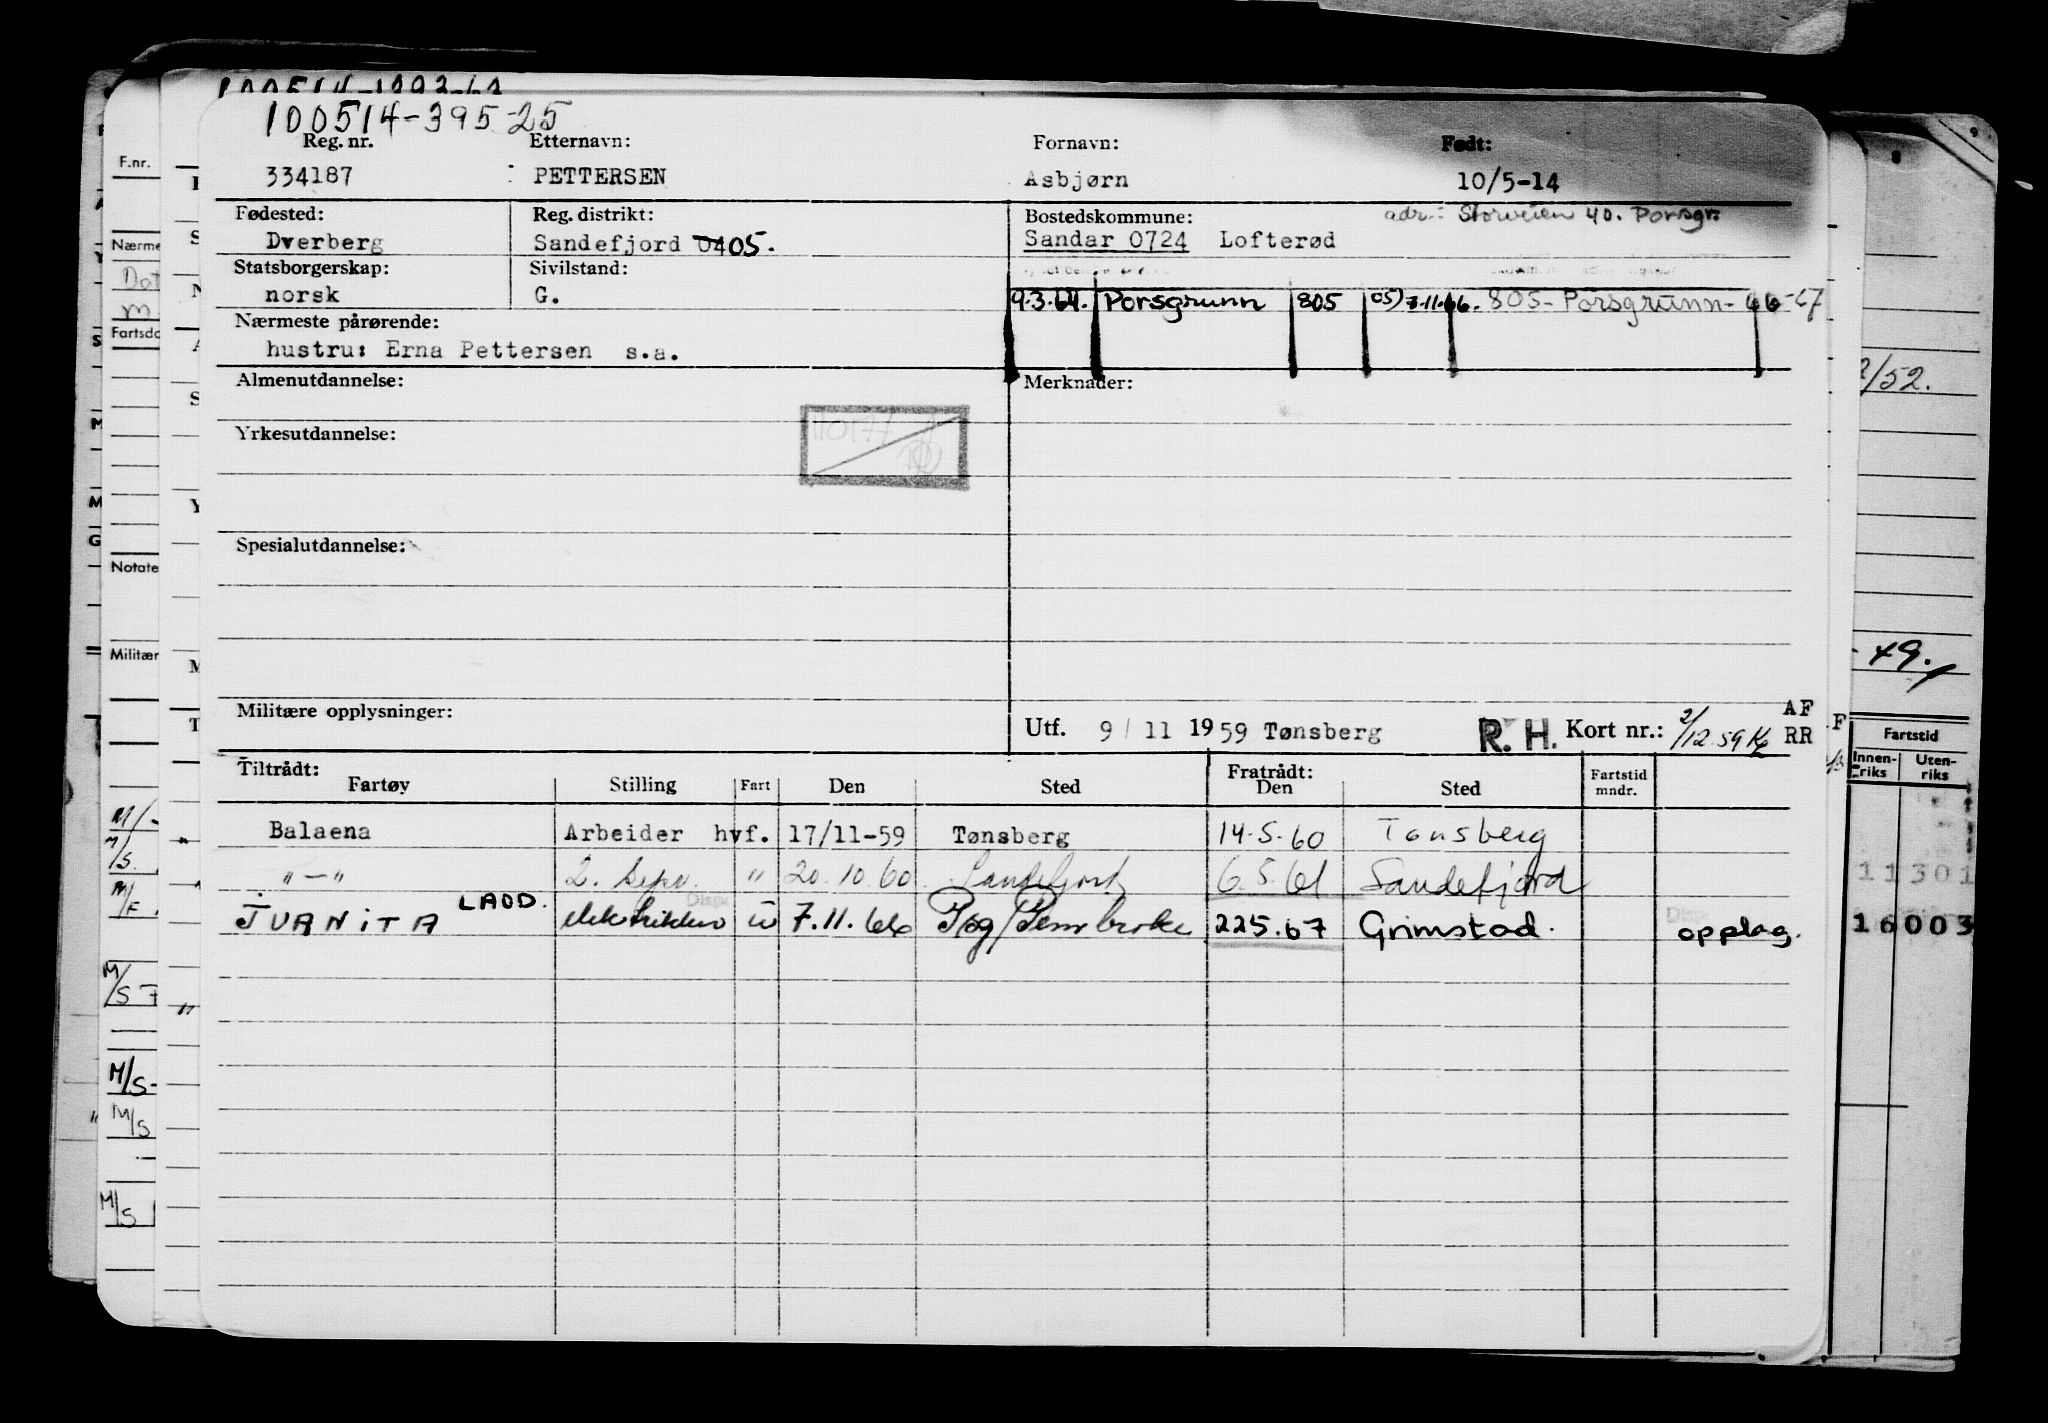 100514-395-25
Reg. nr. Etternavn: Fornavn: Født:
334187 PETTERSEN Asbjørn 10/5-14
Fødested: Reg. distrikt: Bostedskommune: adr: Storveien 40. Porsgr.
Dverberg Sandefjord 0405. Sandar 0724 Lofterød
Statsborgerskap: Sivilstand:
norsk G. 9.3.64. Porsgrunn 805 05) 7.11.66. 805- Porsgrunn- 66-67
Nærmeste pårørende:
hustru: Erna Pettersen s.a.
Almenutdannelse: Merknader:
Yrkesutdannelse:
Spesialutdannelse:
Militære opplysninger: Utf. 9/11 1959 Tønsberg R. H. Kort nr.: 2/12.59 AF
RR
Tiltrådt: Fratrådt:
Fartøy Stilling Fart Den Sted Den Sted Fartstid mndr.
Balaena Arbeider hvf. 17/11-59 Tønsberg 14.5.60 Tønsberg
"-" 2. " 20.10.60 Sandefjord 6.5.61 Sandefjord
JUANITA LAOD. elektriker u 7.11.66 Psg/Pembroke 225.67 Grimstad. opplag.
F.nr.
Nærme
Fartsdo
Notate
Militær
M/S
M/S
M/S
M/S
/52.
49.
Fartstid
Innen-riks Uten-riks
11301
16003